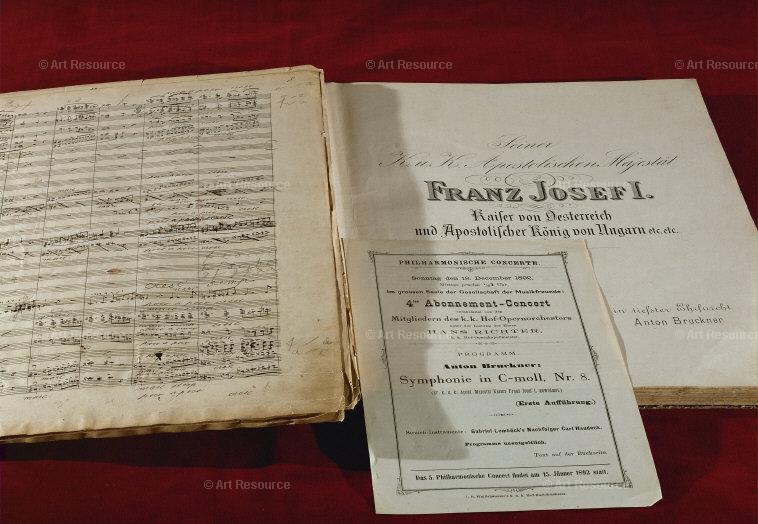 Seiner
K. u. K. Apostolischen Majestät
FRANZ JOSEF I.
Kaiser von Oesterreich
und Apostolischer König von Ungarn etc. etc.
in tiefster Ehrfurcht
Anton Bruckner.
PHILHARMONISCHE CONCERTE.
Sonntag den 18. December 1892,
Mittags präcise ½1 Uhr,
im grossen Saale der Gesellschaft der Musikfreunde:
4tes Abonnement-Concert
veranstaltet von den
Mitgliedern des k. k. Hof-Opernorchesters
unter der Leitung des Herrn
HANS RICHTER,
k. k. Hof-Opernkapellmeister.
PROGRAMM.
Anton Bruckner:
Symphonie in C-moll, Nr. 8.
(Sr. k. u. k. Apost. Majestät Kaiser Franz Josef I. gewidmet.)
(Erste Aufführung.)
Streich-Instrumente: Gabriel Lemböck's Nachfolger Carl Haudeck.
Programme unentgeltlich.
Text auf der Rückseite.
Das 5. Philharmonische Concert findet am 15. Jänner 1893 statt.
© Art Resource
© Art Resource
© Art Resource
© Art Resource
© Art Resource
© Art Resource
© Art Resource
© Art Resource